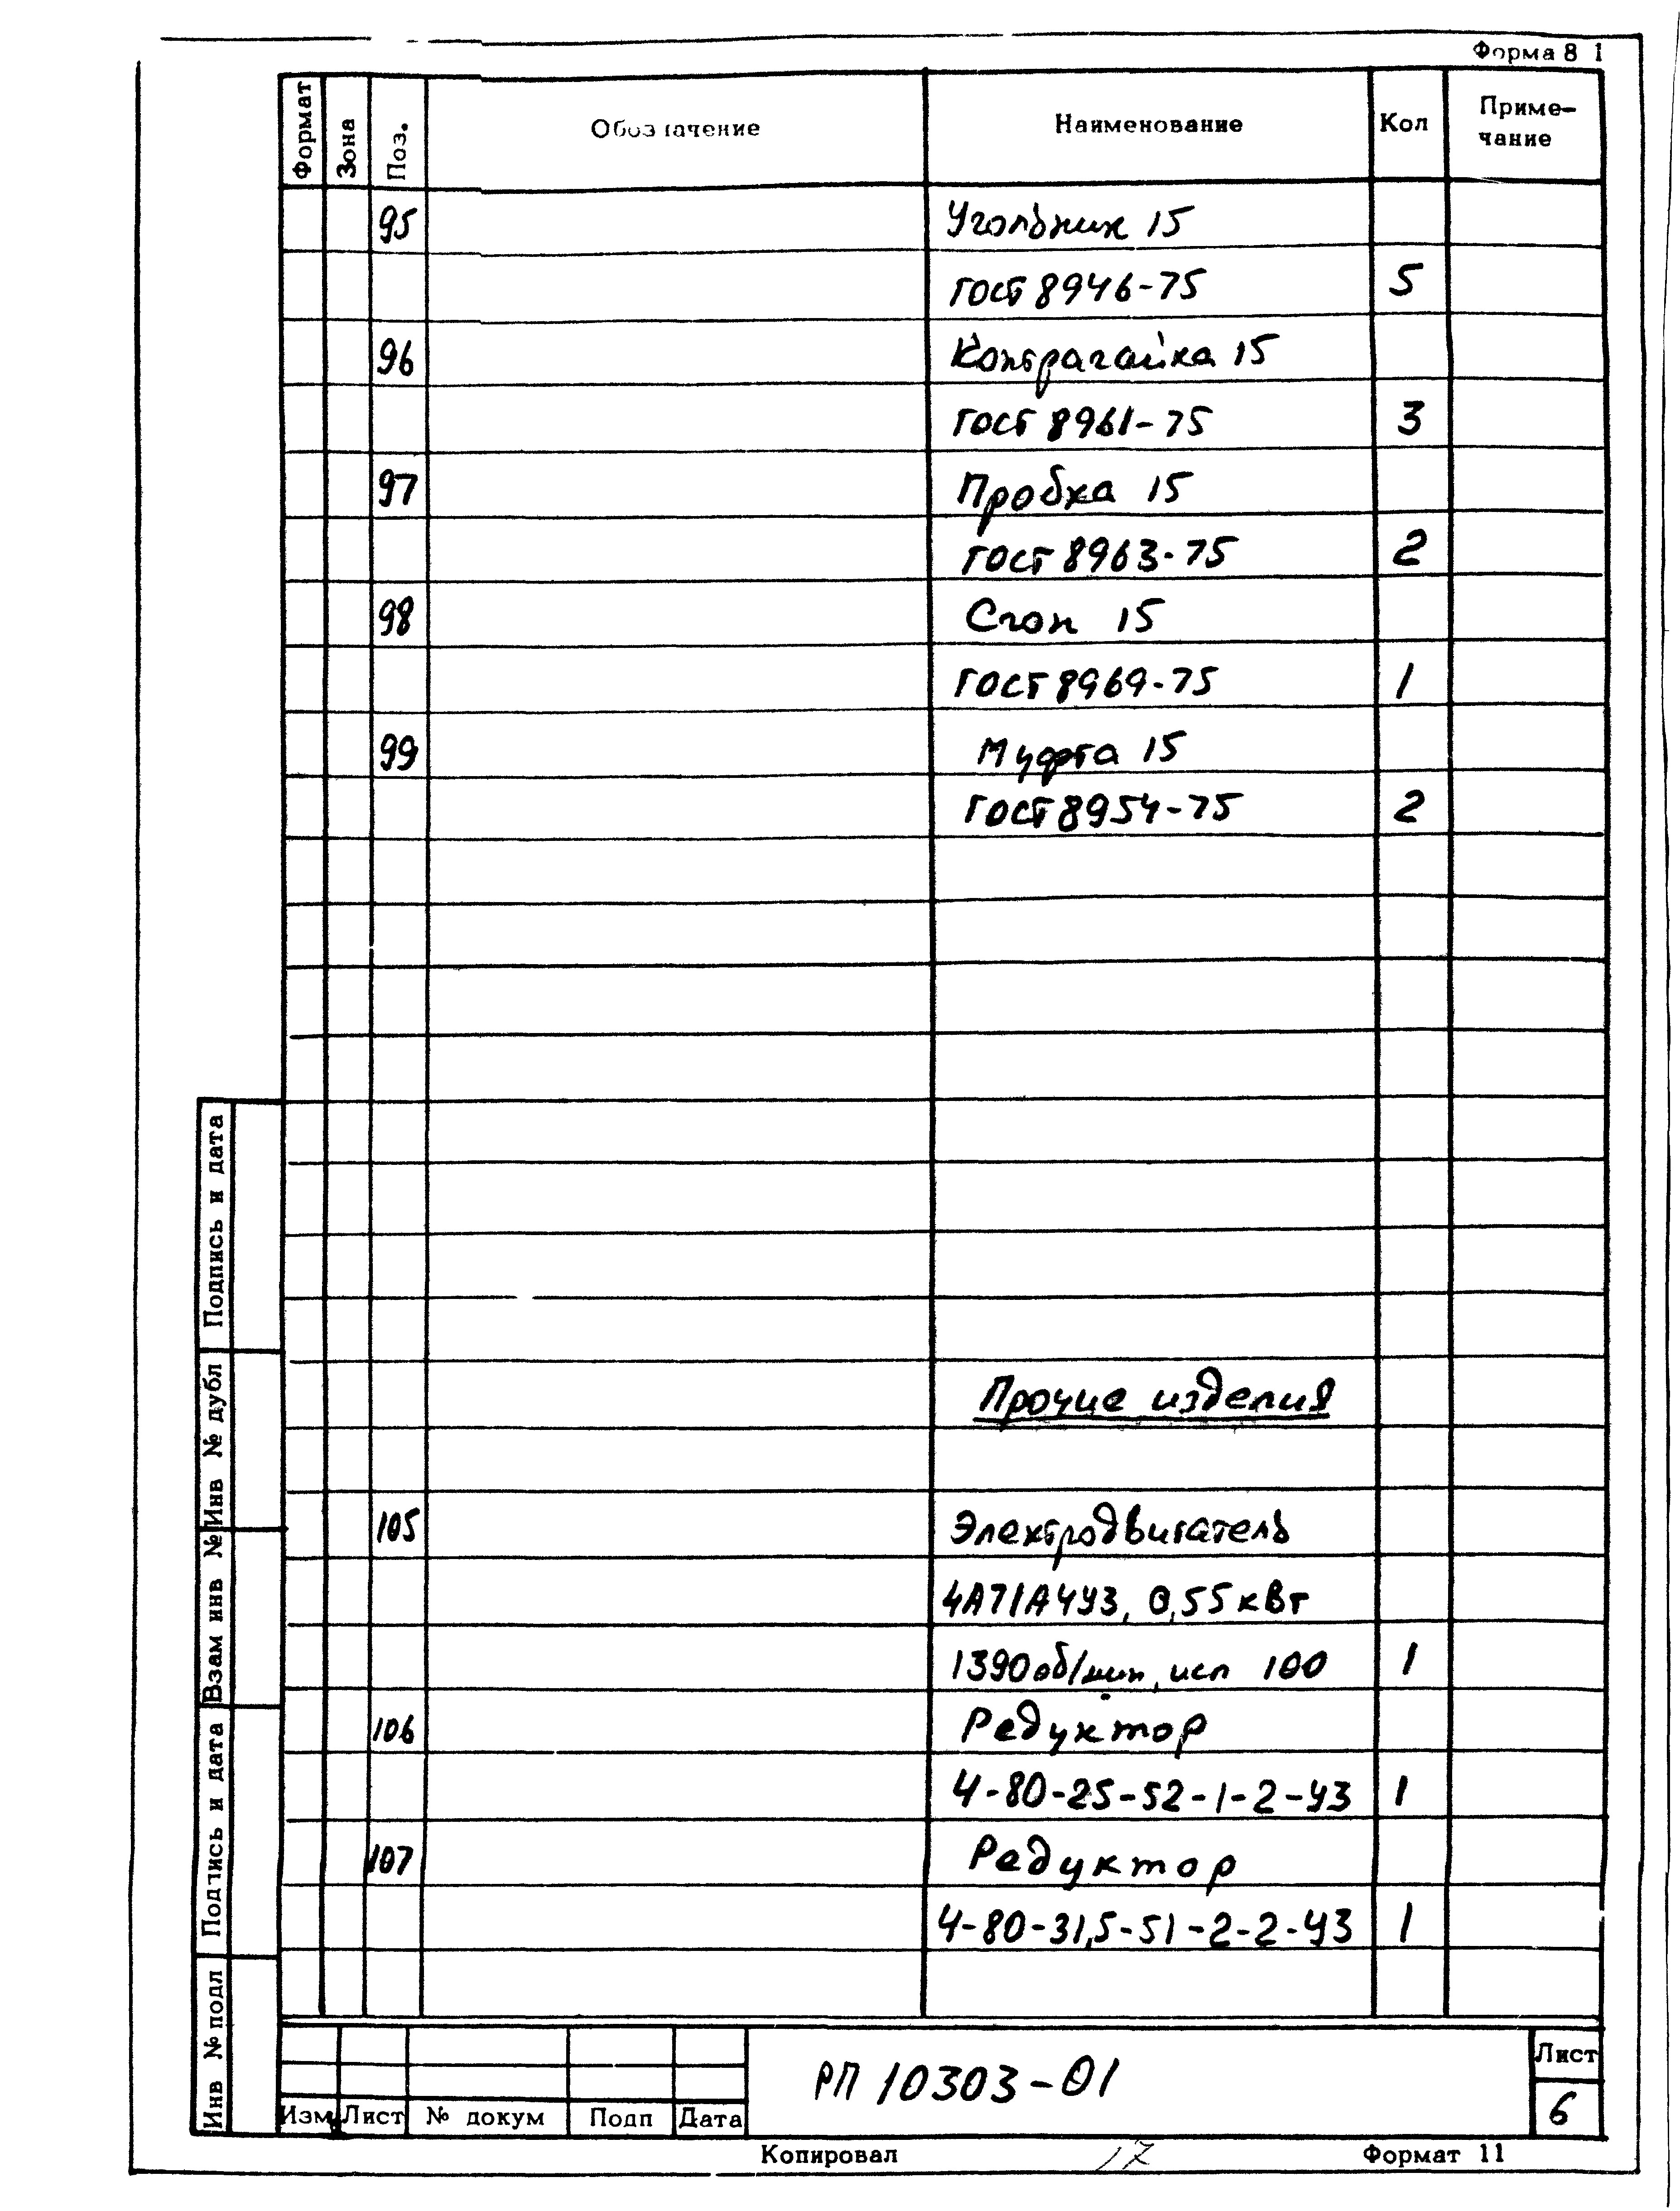 Форма 8 1
Формат Зона Поз. Обозначение Наименование Кол Приме-
чание
95 Угольник 15
ГОСТ 8946-75 5
96 Контрагайка 15
ГОСТ 8961-75 3
97 Пробка 15
ГОСТ 8963-75 2
98 Сгон 15
ГОСТ 8969-75 1
99 Муфта 15
ГОСТ 8954-75 2
Прочие изделия
105 Электродвигатель
4А71А4У3, 0,55 кВт
1390 об/мин, исп 100 1
106 Редуктор
Ч-80-25-52-1-2-У3 1
107 Редуктор
Ч-80-31,5-51-2-2-У3 1
Подпись и дата
Инв № дубл
Взам инв №
Подпись и дата
Инв № подл
Изм Лист № докум Подп Дата
РП 10303-01
Лист
6
Копировал 17 Формат 11